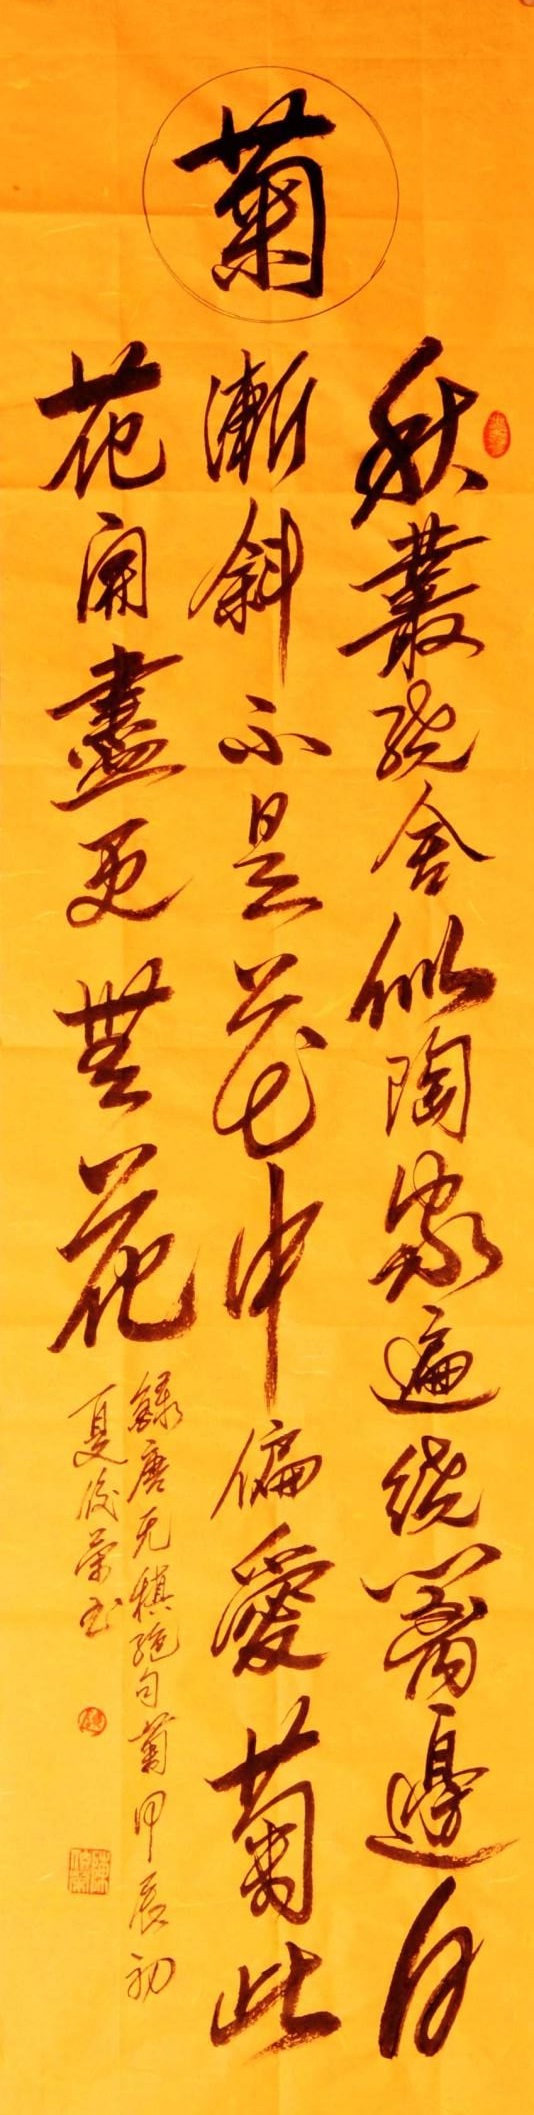 菊
秋叢繞舍似陶家遍繞籬邊日
漸斜不是花中偏愛菊此
花開盡更無花
錄唐元稹絕句菊甲辰初
夏俊榮书